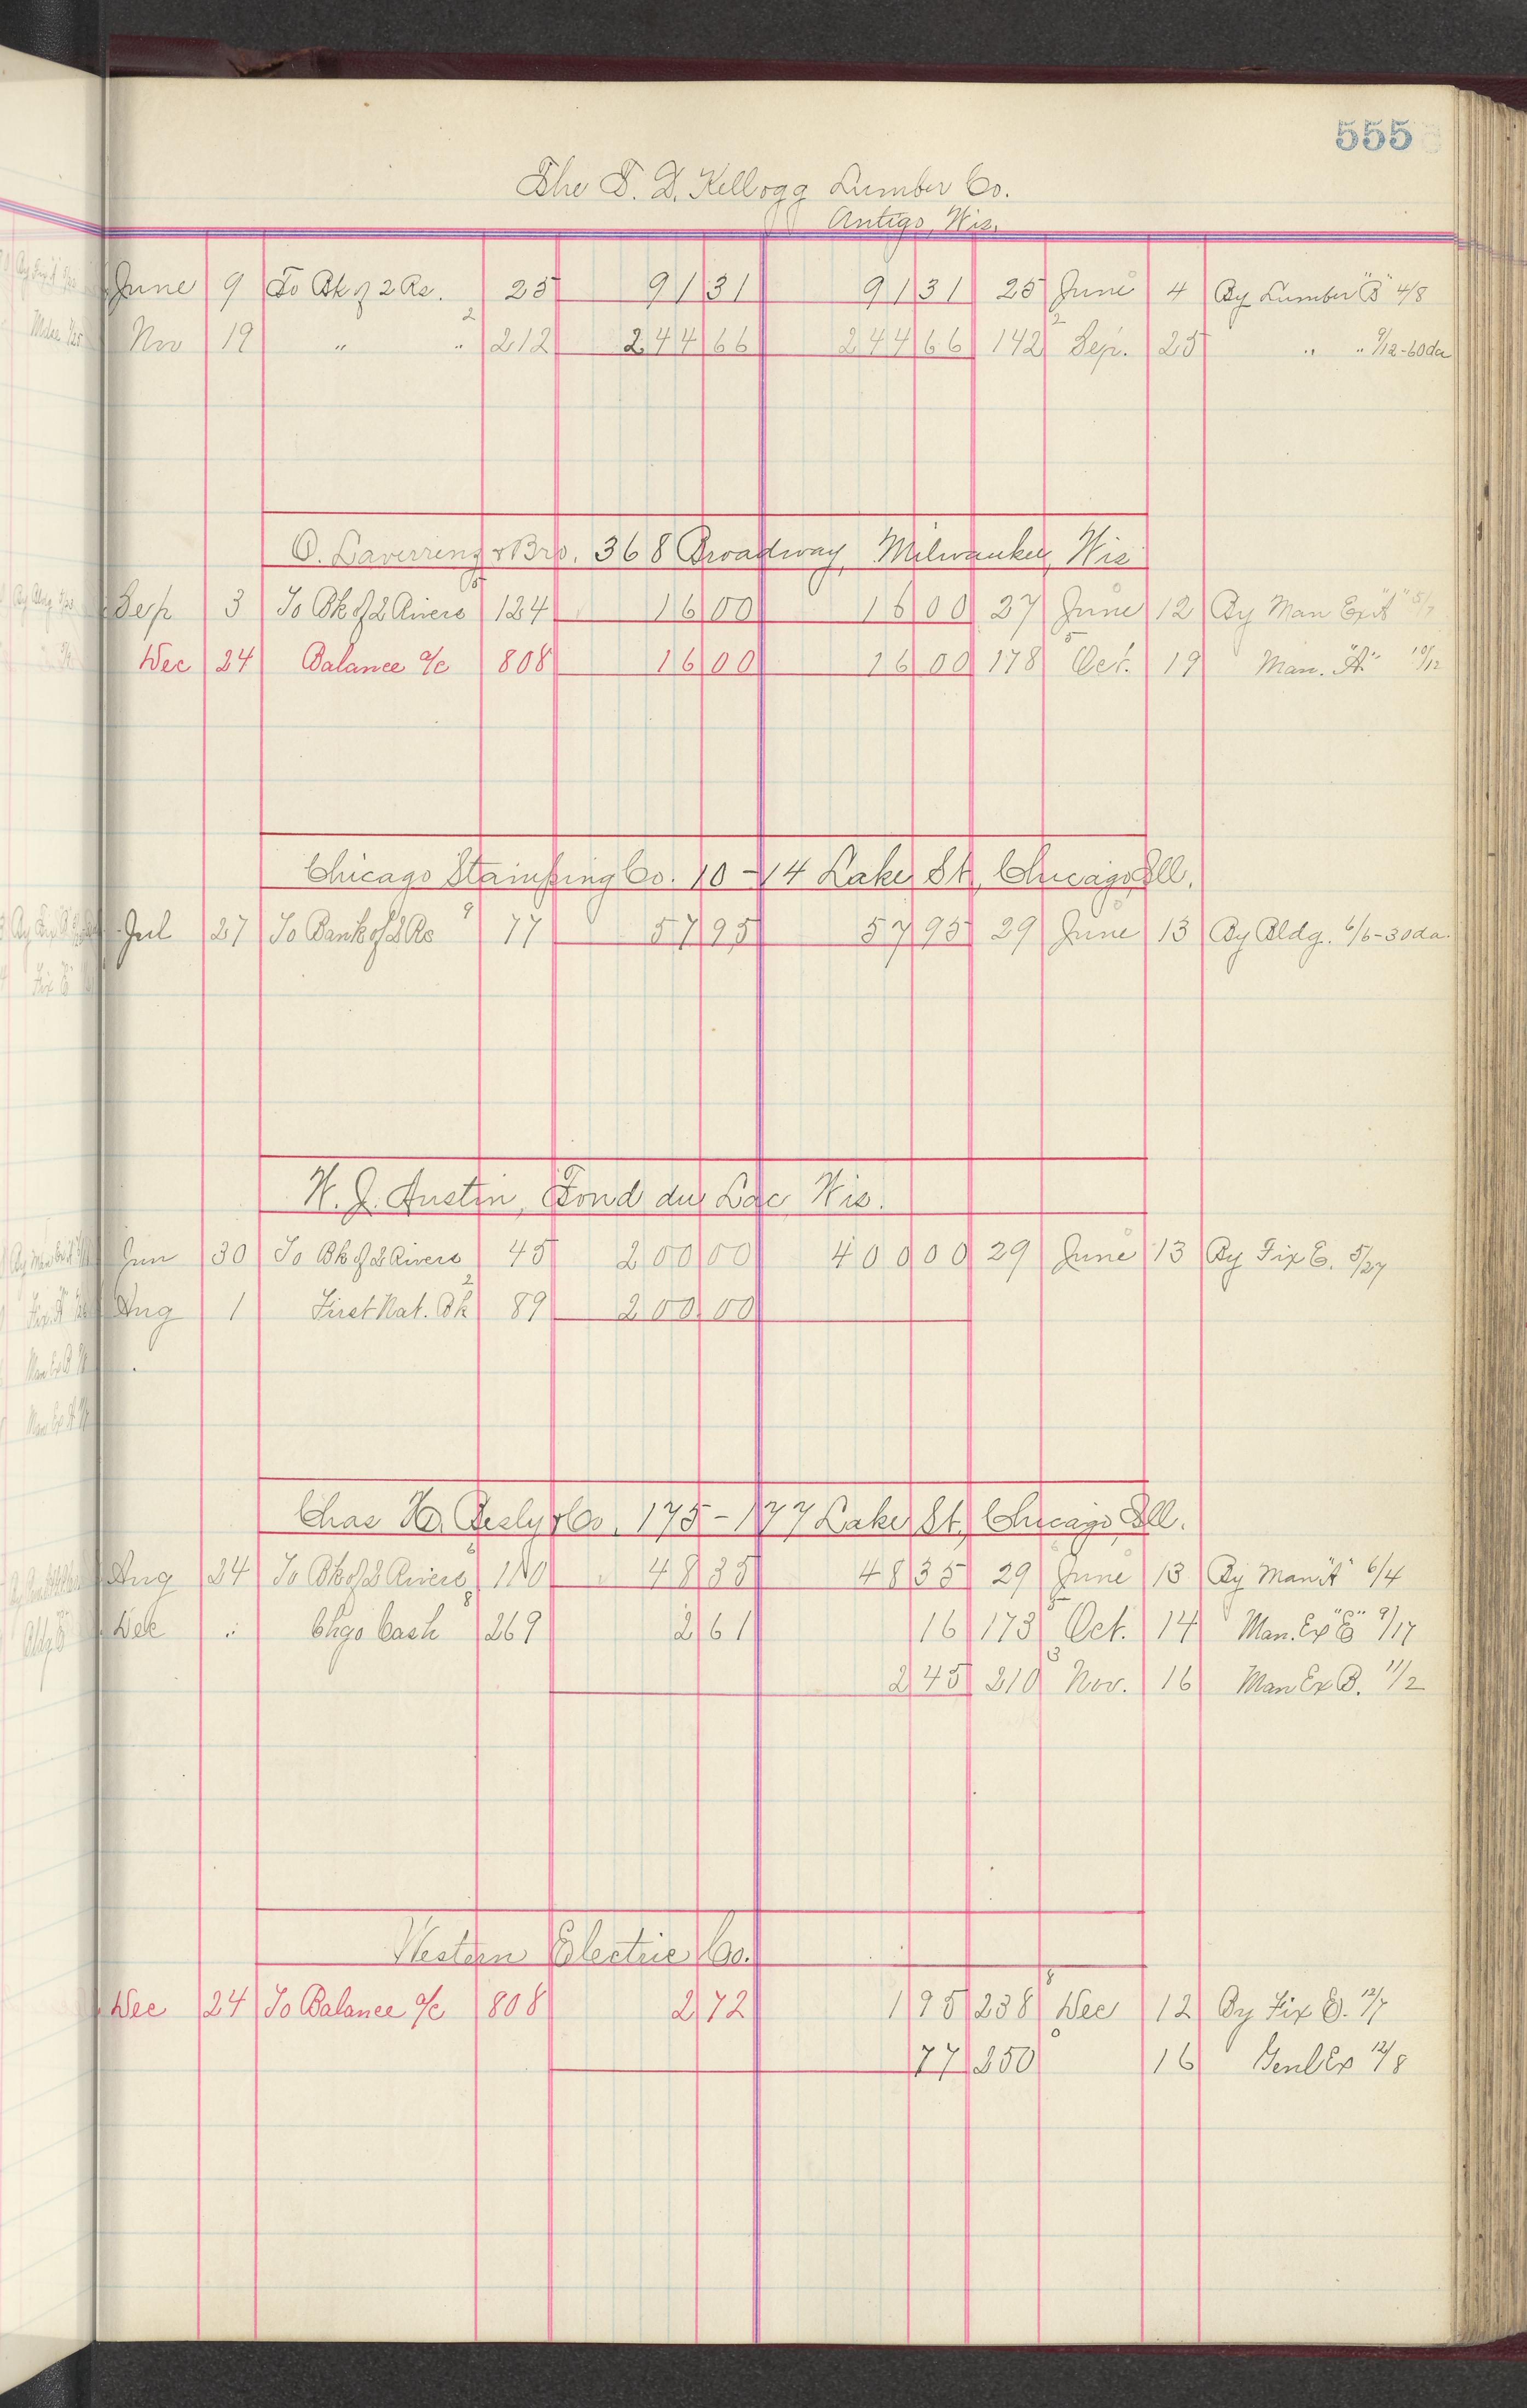 555
The T. D. Kellogg Lumber Co.
Antigo, Wis.
June 9 To Bk of 2 Rs. 25 91 31 91 31 25 June 4 By Lumber "B" 4/8
Nov 19 " " 212 244 66 244 66 142 Sep. 25 " " 9/12-60da
& Bro. 368 Broadway, Milwaukee, Wis
Sep 3 To Bk of 2 Rivers 124 16 00 16 00 27 June 12 By Man Ex "A" 5/7
Dec 24 Balance a/c 808 16 00 16 00 178 Oct. 19 Man. "A" 10/12
Chicago Stamping Co. 10-14 Lake St., Chicago, Ill.
Jul 27 To Bank of 2 Rs 77 57 95 57 95 29 June 13 By Bldg. 6/6-30da.
W. J. Austin, Fond du Lac, Wis.
Jun 30 To Bk of 2 Rivers 45 200 00 400 00 29 June 13 By Fix E. 5/27
Aug 1 First Nat. Bk 89 200 00
Chas H. Besly & Co, 175-177 Lake St., Chicago, Ill.
Aug 24 To Bk of 2 Rivers 110 48 35 48 35 29 June 13 By Man "A" 6/4
Dec " Chgo Cash 269 2 61 16 173 Oct. 14 Man. Ex "E" 9/17
2 45 210 Nov. 16 Man Ex B. 11/2
Western Electric Co.
Dec 24 To Balance a/c 808 2 72 1 95 238 Dec 12 By Fix E. 12/7
77 250 16 Genl Ex 12/8